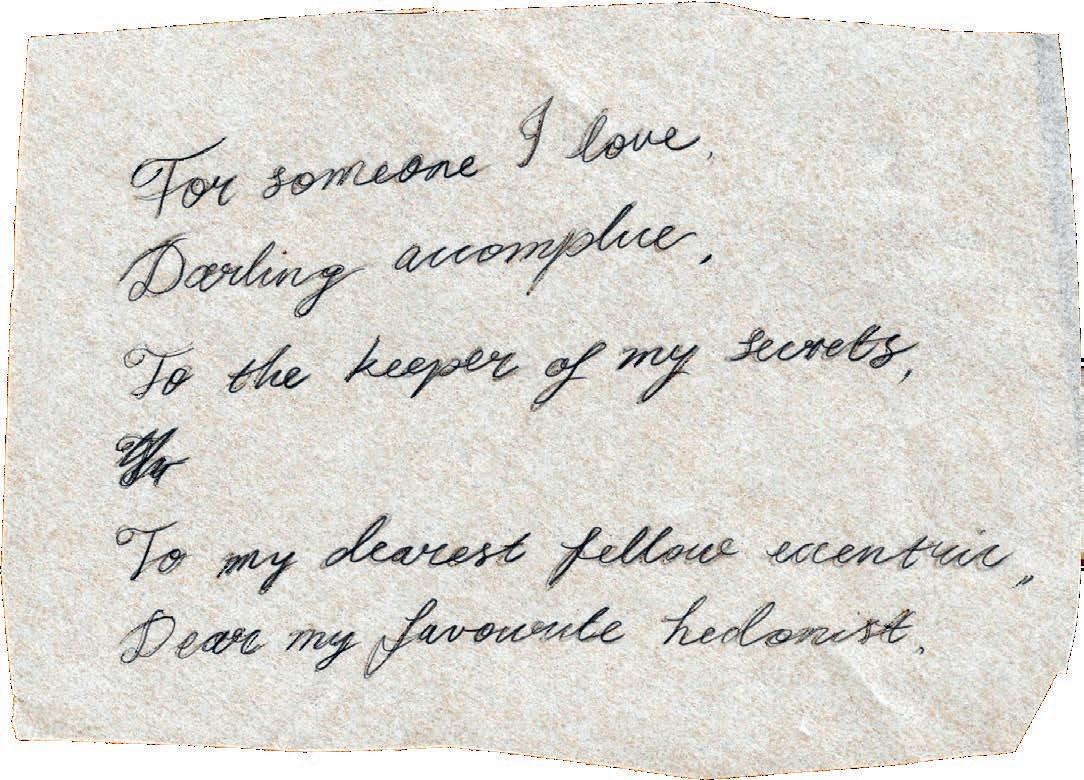 For someone I love,
Darling accomplice,
To the keeper of my secrets,
To my dearest fellow eccentric,,
Dear my favourite hedonist,